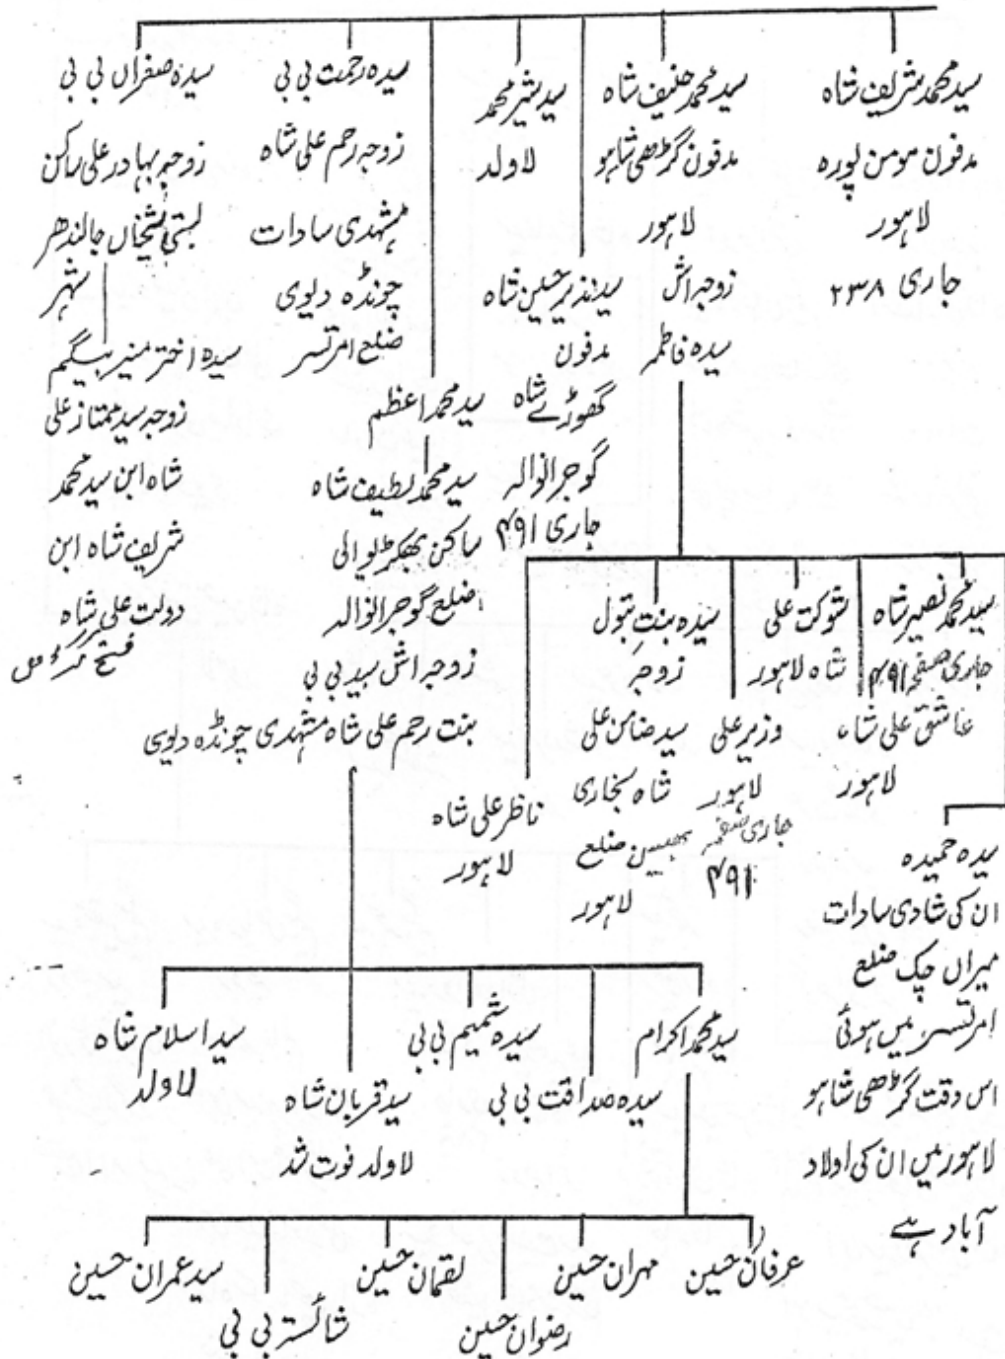 سید محمد شریف شاہ
مدفون مومن پورہ
لاہور
جاری ۲۳۸
سید محمد حنیف شاہ
مدفون گڑھی شاہو
لاہور
زوجہ اش
سیدہ فاطمہ
سید شیر محمد
لاولد
سید نذیر حسین شاہ
مدفون
گھوڑے شاہ
گوجرانوالہ
جاری ۴۹۱
سیدہ رحمت بی بی
زوجہ رحم علی شاہ
مشہدی سادات
چونڈہ دیوی
ضلع امرتسر
سیدہ صغراں بی بی
زوجہ بہادر علی ساکن
بستی شیخاں جالندھر
شہر
سیدہ اختر منیر بیگم
زوجہ سید ممتاز علی
شاہ ابن سید محمد
شریف شاہ ابن
دولت علی شاہ
سید محمد اعظم
سید محمد لطیف شاہ
ساکن بھکڑیوالی
ضلع گوجرانوالہ
زوجہ اش سید بی بی
بنت رحم علی شاہ مشہدی چونڈہ دیوی
سید محمد نصیر شاہ
جاری صفحہ ۴۹۱
عاشق علی شاہ
لاہور
شوکت علی
شاہ لاہور
وزیر علی
لاہور
جاری صفحہ
۴۹۱
سیدہ بنت بتول
زوجہ
سید ضامن علی
شاہ بخاری
ضلع
لاہور
ناظر علی شاہ
لاہور
سیدہ حمیدہ
ان کی شادی سادات
میراں چک ضلع
امرتسر میں ہوئی
اس وقت گڑھی شاہو
لاہور میں ان کی اولاد
آباد ہے
سید محمد اکرام
سیدہ صداقت بی بی
سیدہ شمیم بی بی
سید قربان شاہ
لاولد فوت شد
سید اسلام شاہ
لاولد
عرفان حسین
مہران حسین
رضوان حسین
لقمان حسین
شائستہ بی بی
سید عمران حسین